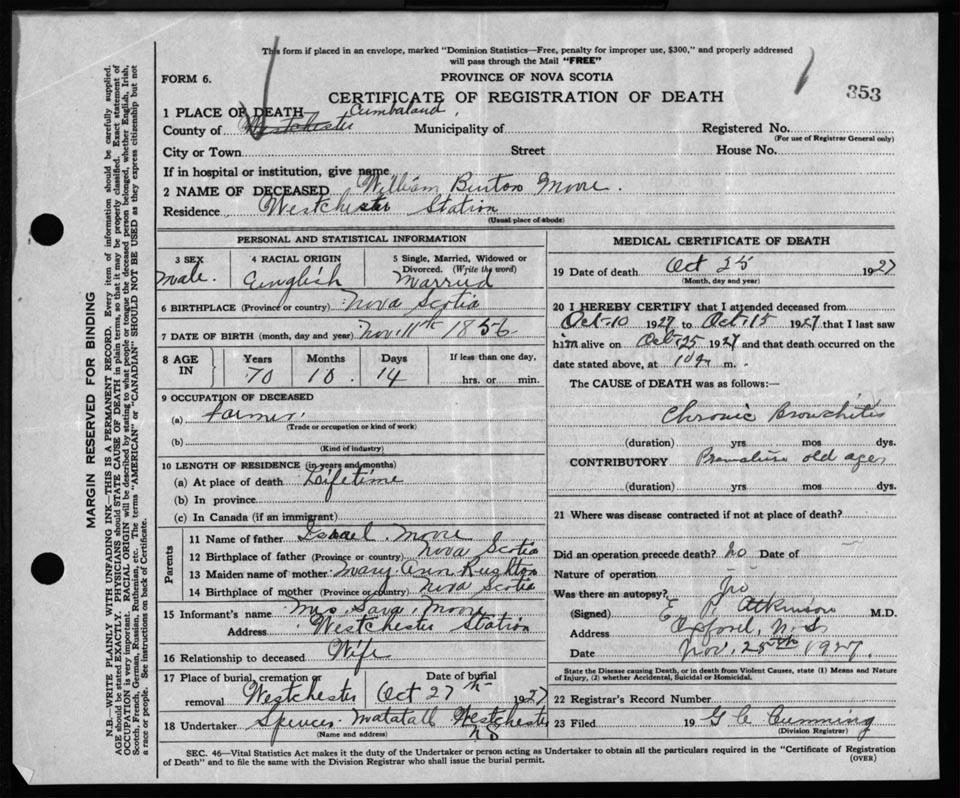 This form if placed in an envelope, marked "Dominion Statistics—Free, penalty for improper use, $300," and properly addressed
will pass through the Mail "FREE"
FORM 6.
PROVINCE OF NOVA SCOTIA
353
CERTIFICATE OF REGISTRATION OF DEATH
1 PLACE OF DEATH— Cumbaland
County of Westchester Municipality of Registered No.
(For use of Registrar General only)
City or Town Street House No.
If in hospital or institution, give name
2 NAME OF DECEASED William Burton Moore.
Residence Westchester Station
(Usual place of abode)
PERSONAL AND STATISTICAL INFORMATION
3 SEX 4 RACIAL ORIGIN 5 Single, Married, Widowed or
Divorced. (Write the word)
Male. English Married
6 BIRTHPLACE (Province or country) Nova Scotia
7 DATE OF BIRTH (month, day and year) Nov. 11th 1856
8 AGE IN Years Months Days If less than one day,
70 10 14 hrs. or min.
9 OCCUPATION OF DECEASED
(a) Farmer.
(Trade or occupation or kind of work)
(b)
(Kind of industry)
10 LENGTH OF RESIDENCE (in years and months)
(a) At place of death Lifetime
(b) In province
(c) In Canada (if an immigrant)
Parents
11 Name of father Israel Moore
12 Birthplace of father (Province or country) Nova Scotia
13 Maiden name of mother Mary Ann Rushton
14 Birthplace of mother (Province or country) Nova Scotia
15 Informant's name Mrs. Sara Moore
Address Westchester Station
16 Relationship to deceased Wife
17 Place of burial, cremation or removal Date of burial
Westchester Oct 27th 1927
18 Undertaker Spencer Matatall Westchester
NS
(Name and address)
MEDICAL CERTIFICATE OF DEATH
19 Date of death Oct 25 1927
(Month, day and year)
20 I HEREBY CERTIFY that I attended deceased from
Oct-10 1927 to Oct-15 1927 that I last saw
him alive on Oct-25 1927 and that death occurred on the
date stated above, at m.
The CAUSE of DEATH was as follows:—
Chronic Bronchitis
(duration) yrs mos dys.
CONTRIBUTORY Premature old age
(duration) yrs mos dys.
21 Where was disease contracted if not at place of death?
Did an operation precede death? No Date of
Nature of operation
Was there an autopsy? No
(Signed) E Atkinson M.D.
Address Oxford, N.S.
Date Nov. 25th 1927.
State the Disease causing Death, or in death from Violent Causes, state (1) Means and Nature
of Injury, (2) whether Accidental, Suicidal or Homicidal.
22 Registrar's Record Number
23 Filed 19 G C Cumming
(Division Registrar)
SEC. 46—Vital Statistics Act makes it the duty of the Undertaker or person acting as Undertaker to obtain all the particulars required in the "Certificate of Registration
of Death" and to file the same with the Division Registrar who shall issue the burial permit.
(OVER)
MARGIN RESERVED FOR BINDING
N.B.—WRITE PLAINLY WITH UNFADING INK—THIS IS A PERMANENT RECORD. Every item of information should be carefully supplied.
AGE should be stated EXACTLY. PHYSICIANS should STATE CAUSE OF DEATH in plain terms, so that it may be properly classified. Exact statement of
OCCUPATION is very important. RACIAL ORIGIN will be described by stating to what people or tongue the deceased person belonged, whether English, Irish,
Scotch, French, German, Russian, Ruthenian, etc. The terms "AMERICAN" or "CANADIAN" SHOULD NOT BE USED as they express citizenship but not
a race or people. See instructions on back of Certificate.